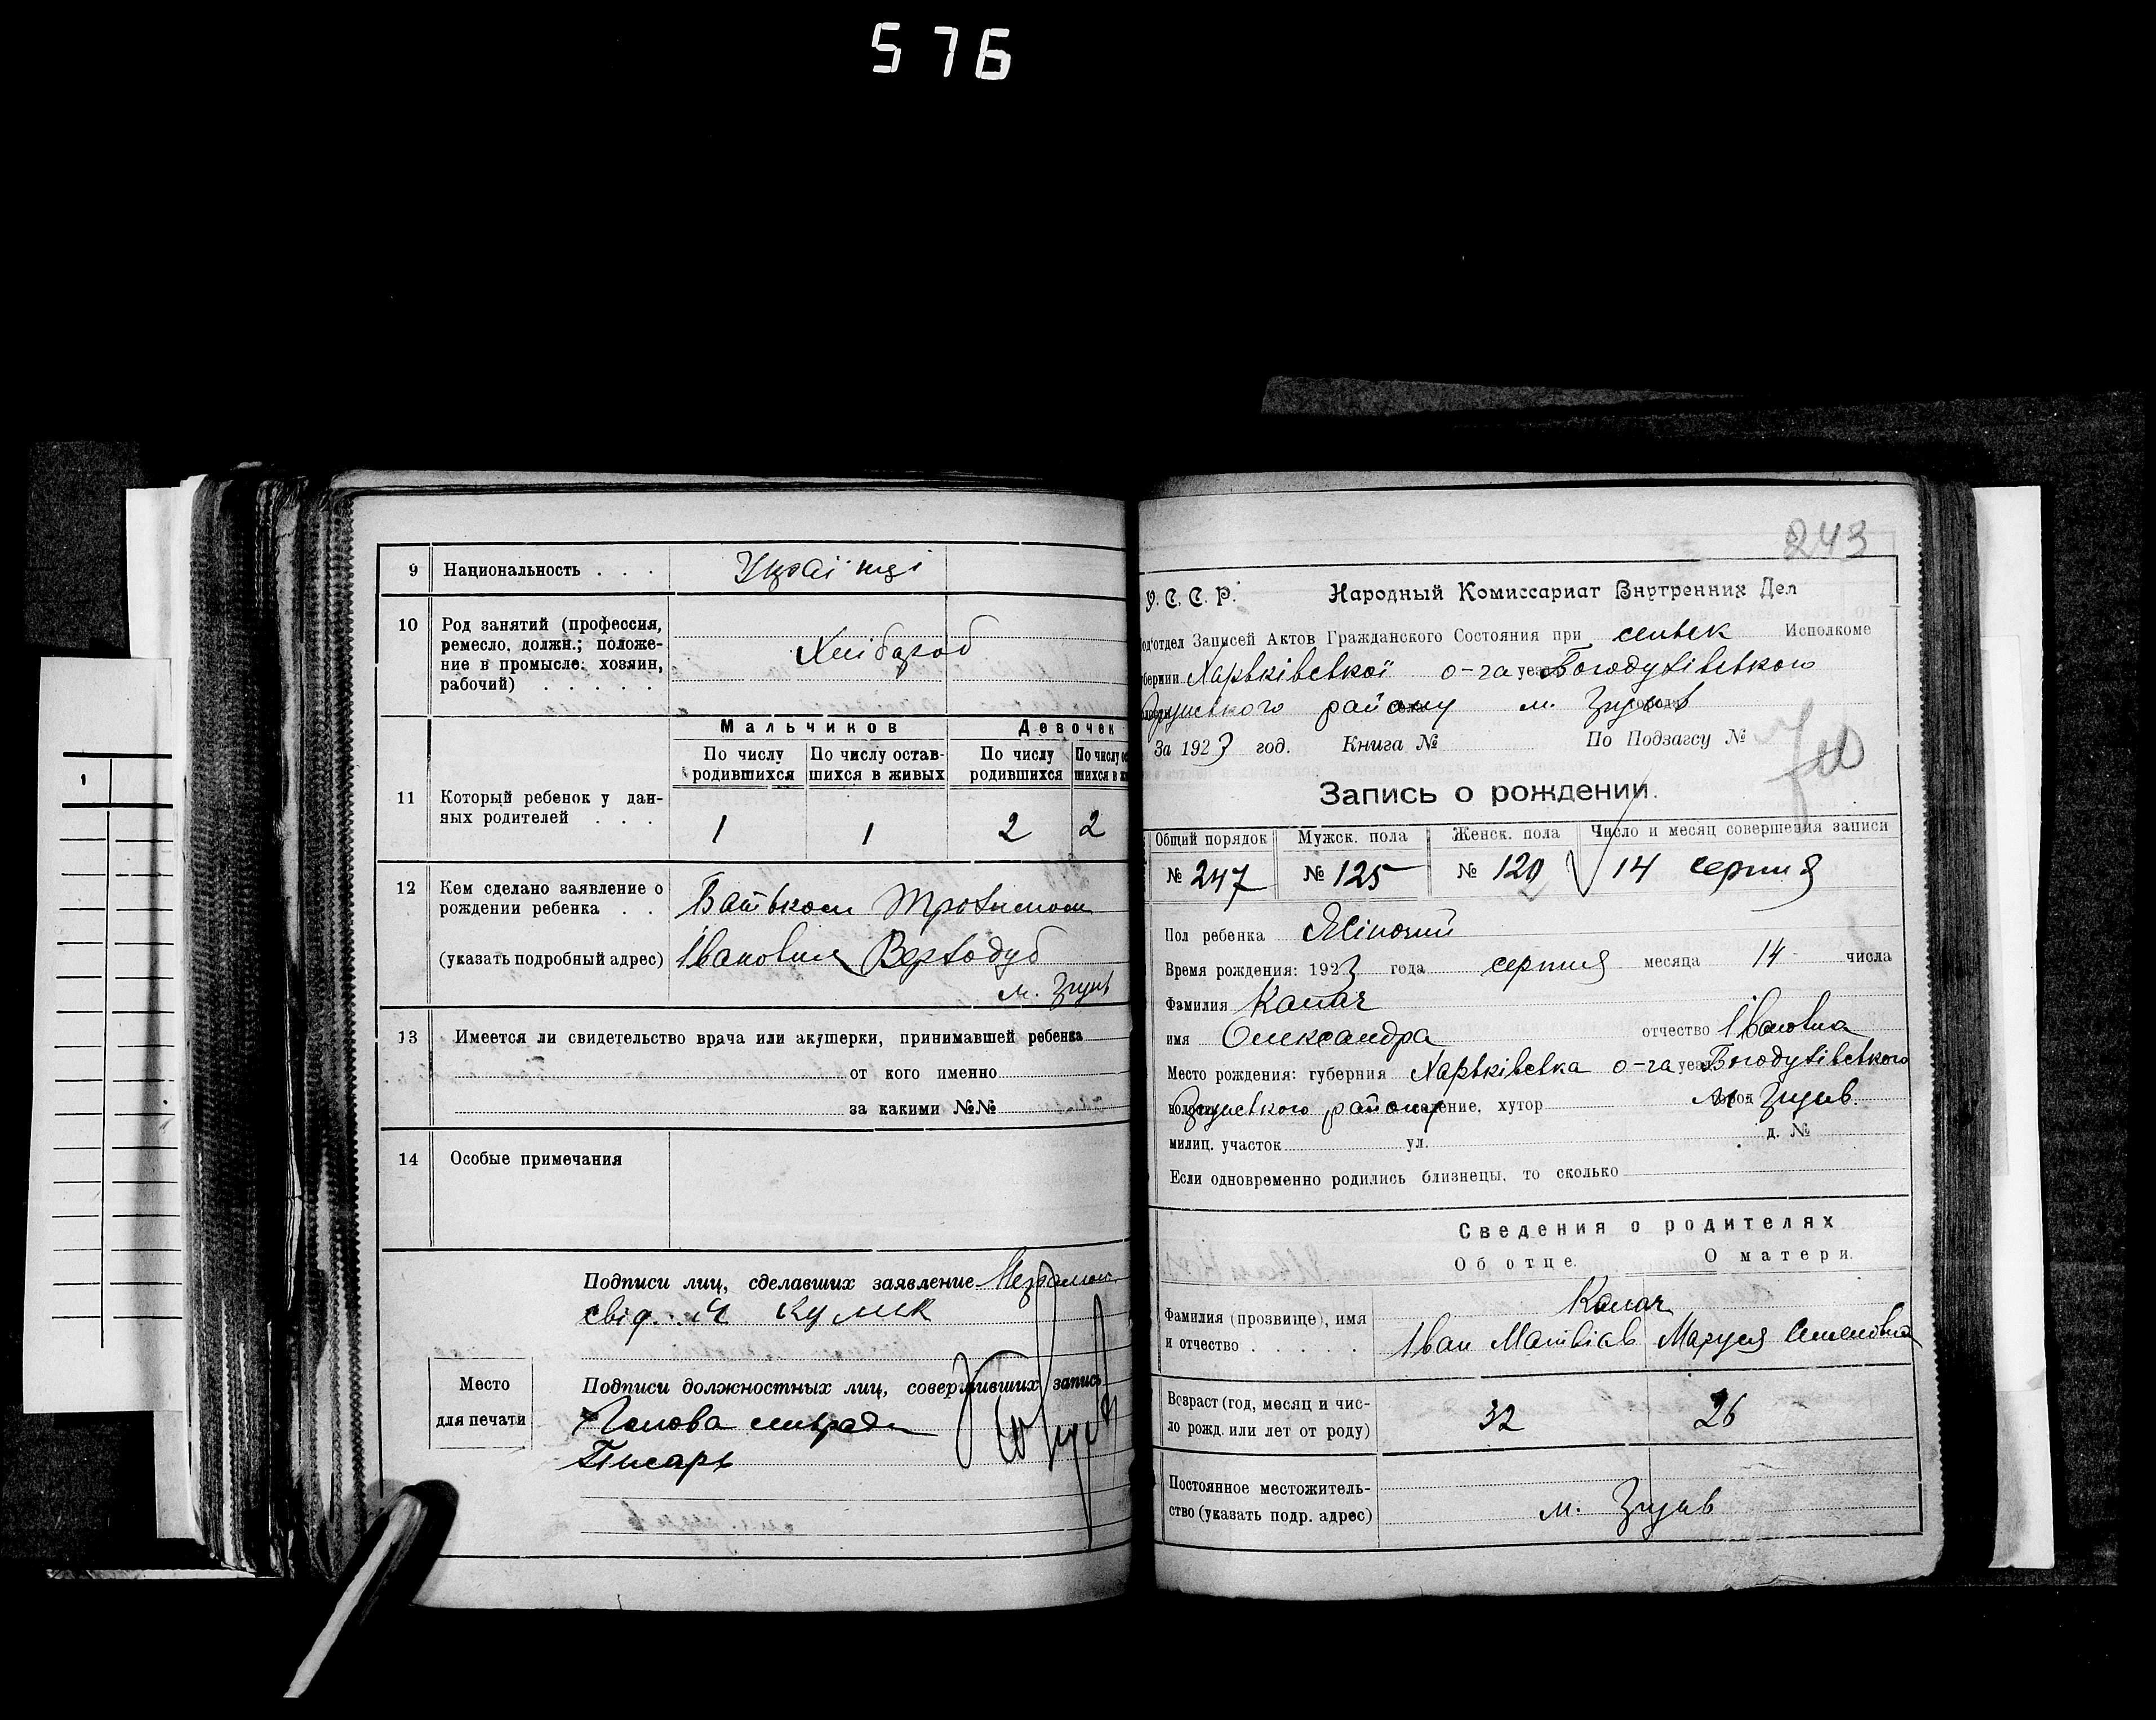 576
9 Национальность . . . Українці
10 Род занятий (профессия,
ремесло, должн.; положе-
ние в промысле: хозяин,
рабочий) . . . . . Хлібороб
Мальчиков Девочек
По числу родившихся По числу остав-шихся в живых По числу родившихся По числу
11 Который ребенок у дан-
ных родителей . . . 1 1 2 2
12 Кем сделано заявление о
рождении ребенка . . Батьком Трохимом
(указать подробный адрес) Івановим Вертодуб
м. Зіньків
13 Имеется ли свидетельство врача или акушерки, принимавшей ребенка
от кого именно
за какими №№
14 Особые примечания
Подписи лиц, сделавших заявление
свід.
Место
для печати
Подписи должностных лиц, совершивших запись
Голова
Писарь
243
У. С. С. Р. Народный Комиссариат Внутренних Дел
отдел Записей Актов Гражданского Состояния при Исполкоме
Харьківської о-га уез Богодухівського
району м.
За 1923 год. Книга № По Подзагсу №
Запись о рождении.
Общий порядок Мужск. пола Женск. пола Число и месяц совершения записи
№ 247 № 125 № 120 14 серпня
Пол ребенка Жіночий
Время рождения: 1923 года серпня месяца 14 числа
Фамилия Капач
имя Олександра отчество Івановна
Место рождения: губерния Харьківська о-га уез Богодухівського
району ление, хутор м.
милиц. участок ул. д. №
Если одновременно родились близнецы, то сколько
Сведения о родителях
Об отце. О матери.
Капач
Фамилия (прозвище), имя
и отчество . . . . . Іван Матвіїв Маруся Семеновна
Возраст (год, месяц и чис-
ло рожд. или лет от роду) 32 26
Постоянное местожитель-
ство (указать подр. адрес) м.